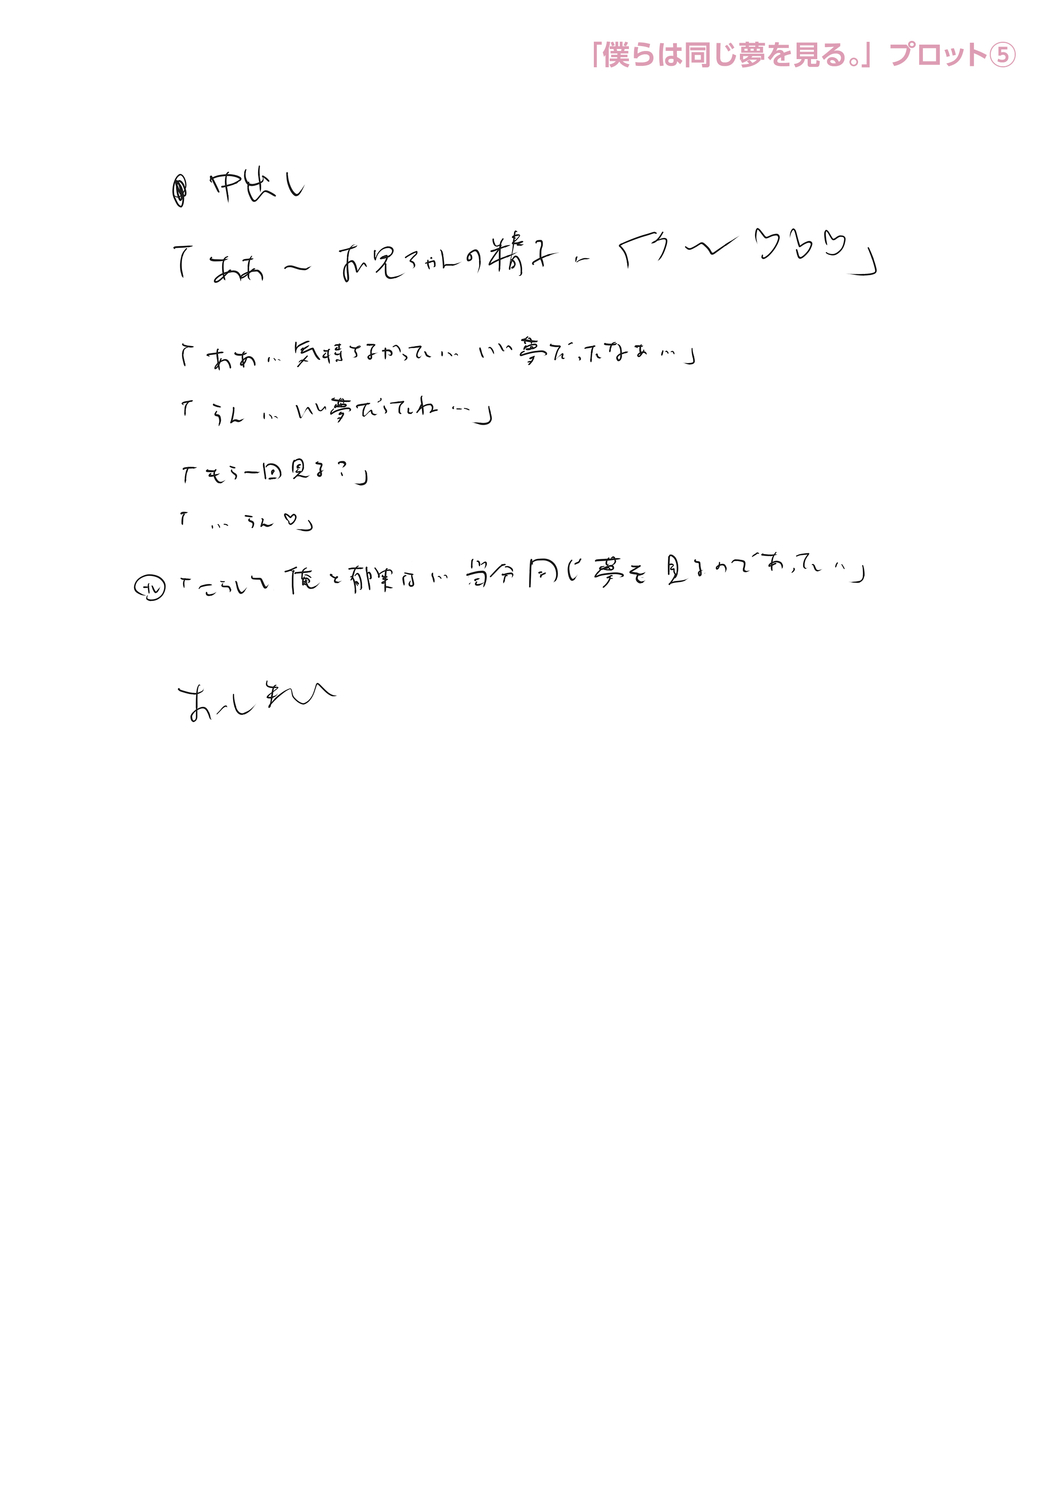 「僕らは同じ夢を見る。」 プロット⑤
中出し
「ああ〜 お兄ちゃんの精子… 〜♡♡♡」
「ああ…気持ちよかった… いい夢だったなぁ…」
「うん…いい夢だったね…」
「もう一回見る?」
「…うん♡」
「こうして俺と郁実は…当分同じ夢を見るのであった…」
おしまい